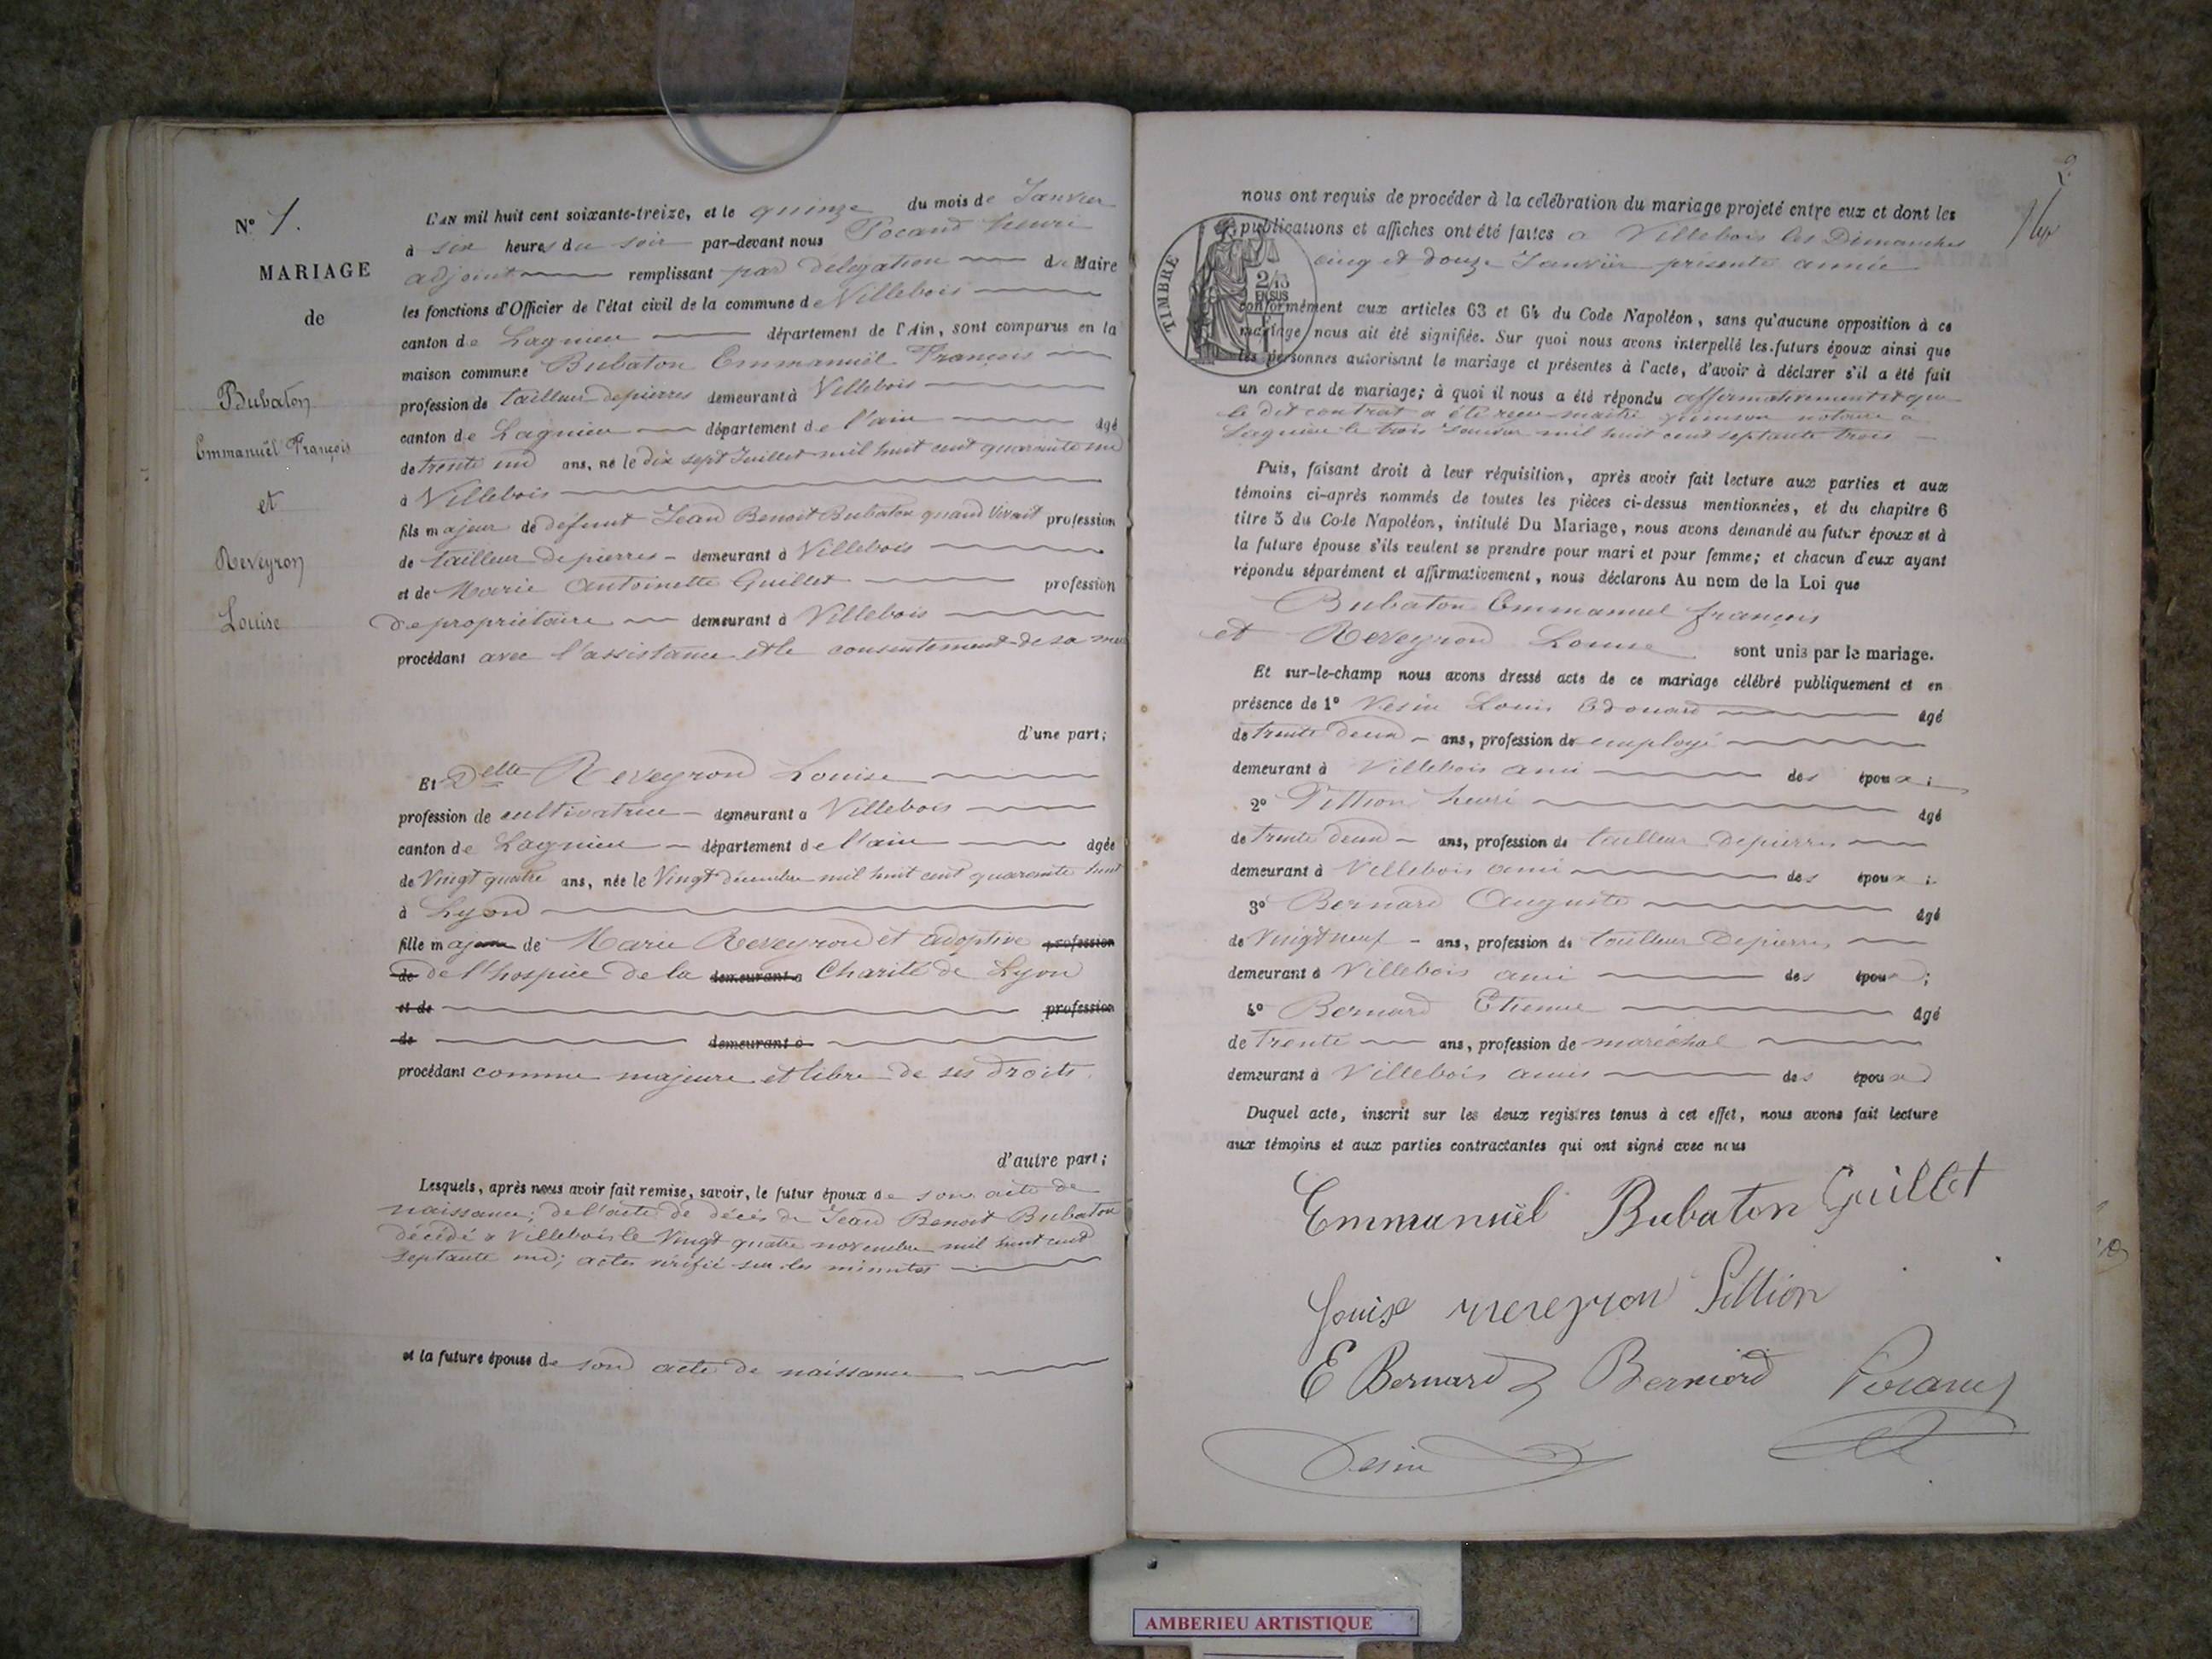 N° 1.
MARIAGE
de
Bubaton
Emmanuël François
et
Reveyron
Louise
L'AN mil huit cent soixante-treize, et le quinze du mois de Janvier
à six heures du soir par-devant nous Pocand henri
adjoint remplissant par délégation du Maire
les fonctions d'Officier de l'état civil de la commune de Villebois
canton de Lagnieu département de l'Ain, sont comparus en la
maison commune Bubaton Emmanuël François
profession de tailleur de pierres demeurant à Villebois
canton de Lagnieu département de l'ain âgé
de trente un ans, né le dix sept Juillet mil huit cent quarante un
à Villebois
fils majeur de défunt Jean Benoit Bubaton quand vivait profession
de tailleur de pierres demeurant à Villebois
et de Marie Antoinette Guillet profession
de propriétaire demeurant à Villebois
procédant avec l'assistance et le consentement de sa mère
d'une part;
Et Delle Reveyron Louise
profession de cultivatrice demeurant a Villebois
canton de Lagnieu département de l'ain âgée
de Vingt quatre ans, née le Vingt décembre mil huit cent quarante huit
à Lyon
fille majeure de Marie Reveyron et adoptive profession
de de l'hospice de la demeurant a Charité de Lyon
et de profession
de demeurant à
procédant comme majeure et libre de ses droits.
d'autre part;
Lesquels, après nous avoir fait remise, savoir, le futur époux de son acte de
naissance; de l'acte de décès de Jean Benoit Bubaton
décédé à Villebois le Vingt quatre novembre mil huit cent
septante un; actes vérifié sur les minutes
et la future épouse de son acte de naissance
2
nous ont requis de procéder à la célébration du mariage projeté entre eux et dont les
publications et affiches ont été faites a Villebois les Dimanches
cinq et douze Janvier présente année
TIMBRE
2/10
EN SUS
conformément aux articles 63 et 64 du Code Napoléon, sans qu'aucune opposition à ce
mariage nous ait été signifiée. Sur quoi nous avons interpellé les futurs époux ainsi que
les personnes autorisant le mariage et présentes à l'acte, d'avoir à déclarer s'il a été fait
un contrat de mariage; à quoi il nous a été répondu affirmativement et que
le dit contrat a été reçu maitre notaire à
Lagnieu le trois Janvier mil huit cent septante trois
Puis, faisant droit à leur réquisition, après avoir fait lecture aux parties et aux
témoins ci-après nommés de toutes les pièces ci-dessus mentionnées, et du chapitre 6
titre 5 du Code Napoléon, intitulé Du Mariage, nous avons demandé au futur époux et à
la future épouse s'ils veulent se prendre pour mari et pour femme; et chacun d'eux ayant
répondu séparément et affirmativement, nous déclarons Au nom de la Loi que
Bubaton Emmanuel françois
et Reveyron Louise sont unis par le mariage.
Et sur-le-champ nous avons dressé acte de ce mariage célébré publiquement et en
présence de 1° Vesin Louis Edouard âgé
de trente deux ans, profession de employé
demeurant à Villebois ami des époux;
2° Pittion henri âgé
de trente deux ans, profession de tailleur de pierres
demeurant à Villebois ami des époux;
3° Bernard Auguste âgé
de Vingt neuf ans, profession de tailleur de pierres
demeurant à Villebois ami des époux;
4° Bernard Etienne âgé
de Trente ans, profession de maréchal
demeurant à Villebois amis des époux
Duquel acte, inscrit sur les deux registres tenus à cet effet, nous avons fait lecture
aux témoins et aux parties contractantes qui ont signé avec nous
Emmanuël Bubaton Guillet
Louise rereyron Pittion
E Bernard Bernard Pocand
Vesin
AMBERIEU ARTISTIQUE